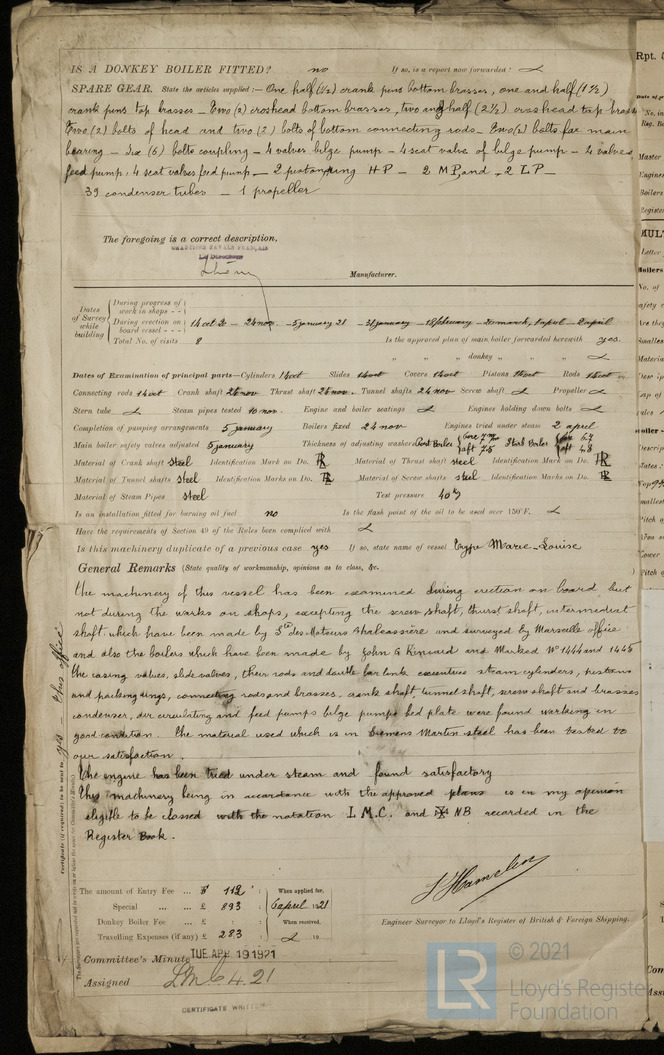 IS A DONKEY BOILER FITTED? no If so, is a report now forwarded?
SPARE GEAR. State the articles supplied:— One half (1/2) crank pins bottom brasses, one and half (1 1/2)
crank pins top brasses — Two (2) croshead bottom brasses, two and half (2 1/2) croshead top brass
Two (2) bolts of head and two (2) bolts of bottom connecting rods — Two (2) bolts for main
bearing — Six (6) bolts coupling — 4 valves bilge pump — 4 seat valve of bilge pump — 4 valves
feed pump, 4 seat valves feed pump — 2 piston ring HP — 2 MP and 2 LP —
39 condenser tubes — 1 propeller
The foregoing is a correct description,
CHANTIERS NAVALS FRANÇAIS
Le Directeur
Manufacturer.
Dates of Survey while building
During progress of work in shops - -
During erection on board vessel - - 14 oct 20 — 24 nov. — 5 january 21 — 31 january — 18 february — 20 march, 1 april — 2 april
Total No. of visits 8 Is the approved plan of main boiler forwarded herewith yes.
" " " donkey " "
Dates of Examination of principal parts—Cylinders 14 oct Slides 14 oct Covers 14 oct Pistons 14 oct Rods 14 oct
Connecting rods 14 oct Crank shaft 24 nov Thrust shaft 24 nov. Tunnel shafts 24 nov Screw shaft Propeller
Stern tube Steam pipes tested 10 nov. Engine and boiler seatings Engines holding down bolts
Completion of pumping arrangements 5 january Boilers fixed 24 nov Engines tried under steam 2 april
Main boiler safety valves adjusted 5 january Thickness of adjusting washers Port Boiler fore aft 7.5 Stbd Boiler fore 6.7 aft 4.8
Material of Crank shaft steel Identification Mark on Do. Material of Thrust shaft steel Identification Mark on Do.
Material of Tunnel shafts steel Identification Marks on Do. Material of Screw shafts steel Identification Marks on Do.
Material of Steam Pipes steel Test pressure
Is an installation fitted for burning oil fuel no Is the flash point of the oil to be used over 150°F.
Have the requirements of Section 49 of the Rules been complied with
Is this machinery duplicate of a previous case yes If so, state name of vessel Type Marie-Louise
General Remarks (State quality of workmanship, opinions as to class, &c.
The machinery of this vessel has been examined during erection on board, but
not during the works on shops, excepting the screw shaft, thurst shaft, intermediat
shaft which have been made by Sté des Moteurs Chaleassière and surveyed by Marseille office
and also the boilers which have been made by John G Kincaid and Marked N° 1444 and 1445
the casing valves, slide valves, their rods and double bar link executives steam cylinders, pistons
and packing rings, connecting rods and brasses, crank shaft, tunnel shaft, screw shaft and brasses
condenser, air circulating and feed pumps bilge pumps bed plate were found working in
good condition. The material used which is in Siemens Martin steel has been tested to
our satisfaction.
The engine has been tried under steam and found satisfactory
This machinery being in accordance with the approved plans is in my opinion
eligible to be classed with the notation L.M.C. and NB recorded in the
Register Book.
Certificate (if required) to be sent to yes — this office
The amount of Entry Fee ... 112 : When applied for,
Special ... £ 893 : 6 april 1921
Donkey Boiler Fee ... £ : When received,
Travelling Expenses (if any) £ 283 : 19
Engineer Surveyor to Lloyd's Register of British & Foreign Shipping.
Committee's Minute TUE. APR 19 1921
Assigned L.M.C. 4.21
CERTIFICATE WRITTEN
© 2021
LR
Lloyd's Register
Foundation
Rpt.